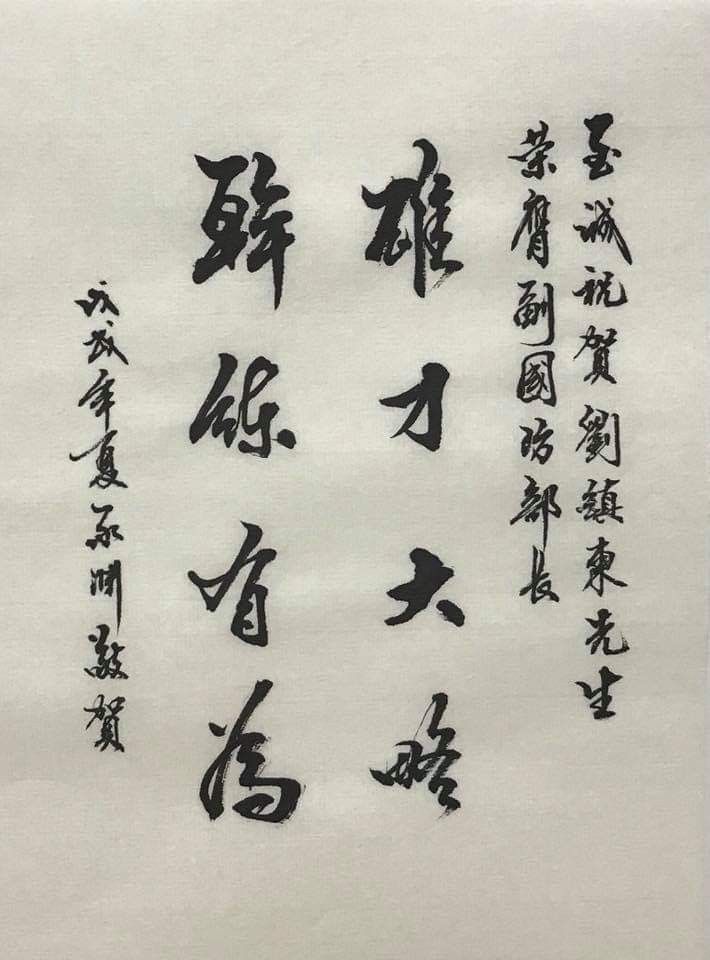 至誠祝賀劉鎮東先生
榮膺副國防部長
雄才大略
幹練有為
戊戌年夏永賀敬賀